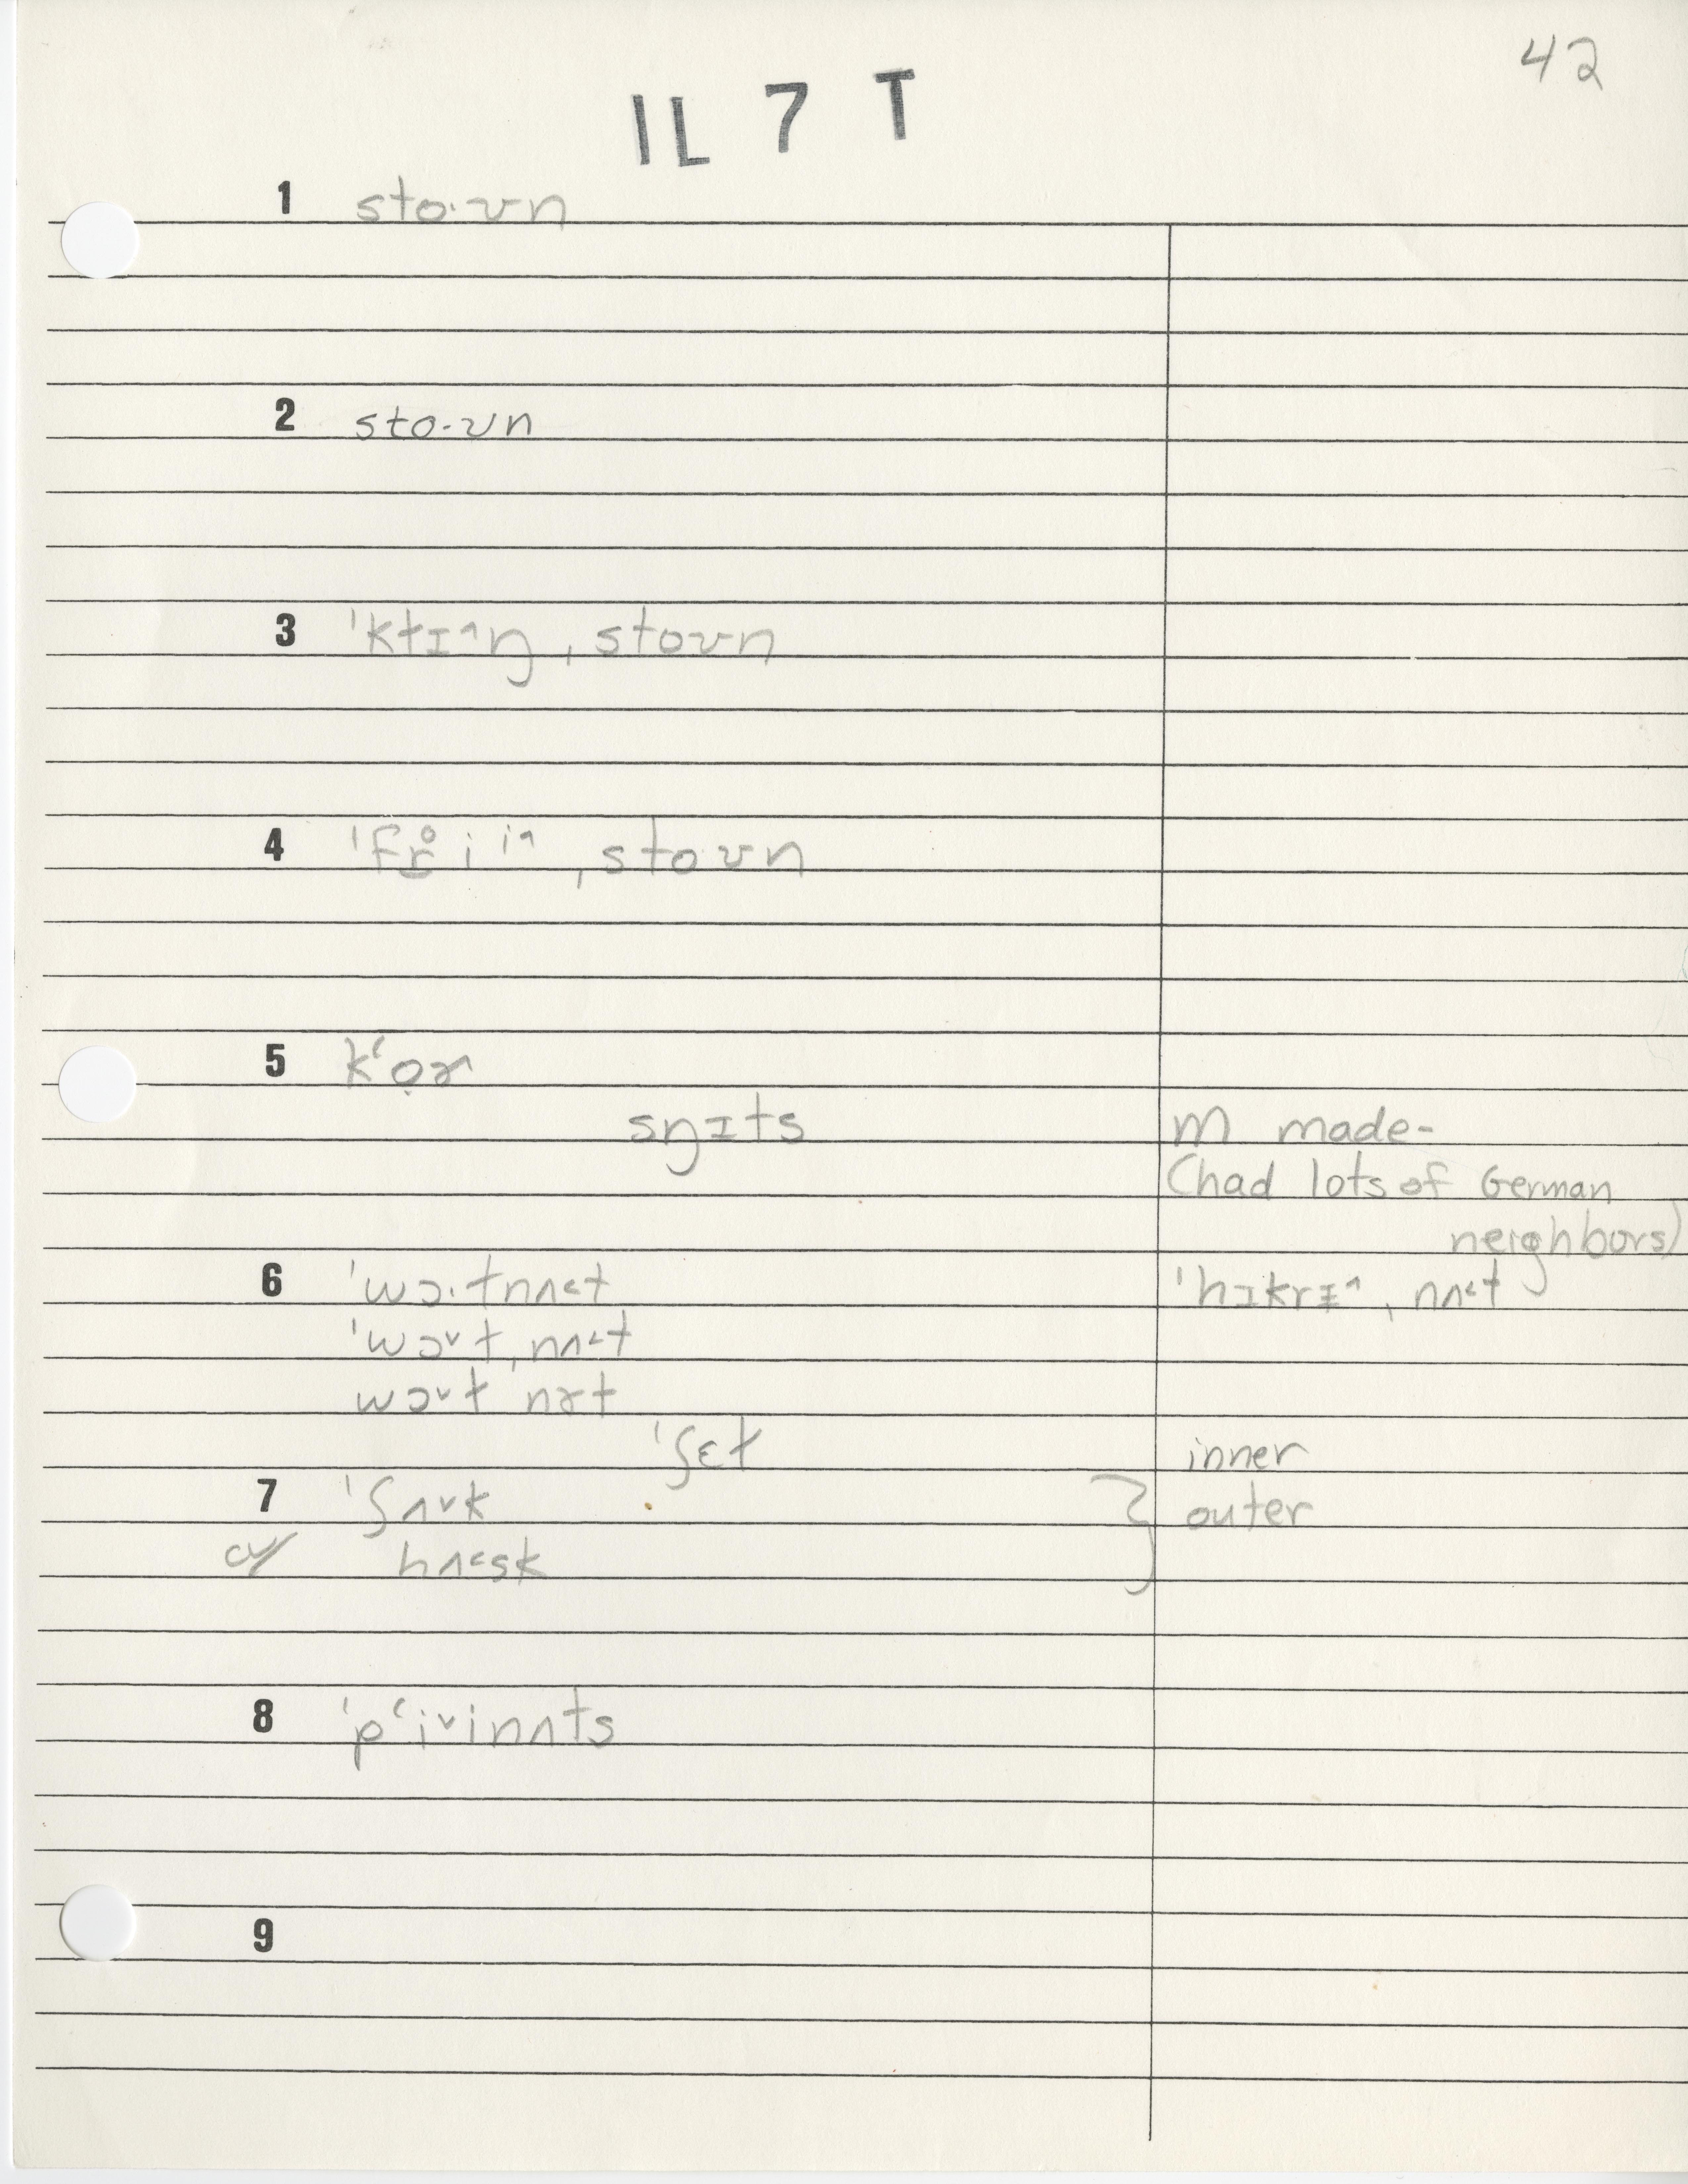 42
IL 7 T
1 sto·ʊn
2 sto·ʊn
3 ˈkɫɪ˄ŋ ˌstoʊn
4 ˈfr̬̊i i˄ ˌstoʊn
5 kʻọɚ
sŋɪts m made-
(had lots of German
neighbors)
6 ˈwɔ·ɫnʌ˂t ˈhɪkrɪ̵˄ ˌnʌ˂t
ˈwɔ˅ɫ ˌnʌ˂t
wɔ˅ɫ nɚt
ˈʃɛɫ inner
7 ˈʃʌ˅k outer
cv hʌ˂sk
8 ˈpʻi˅inʌts
9